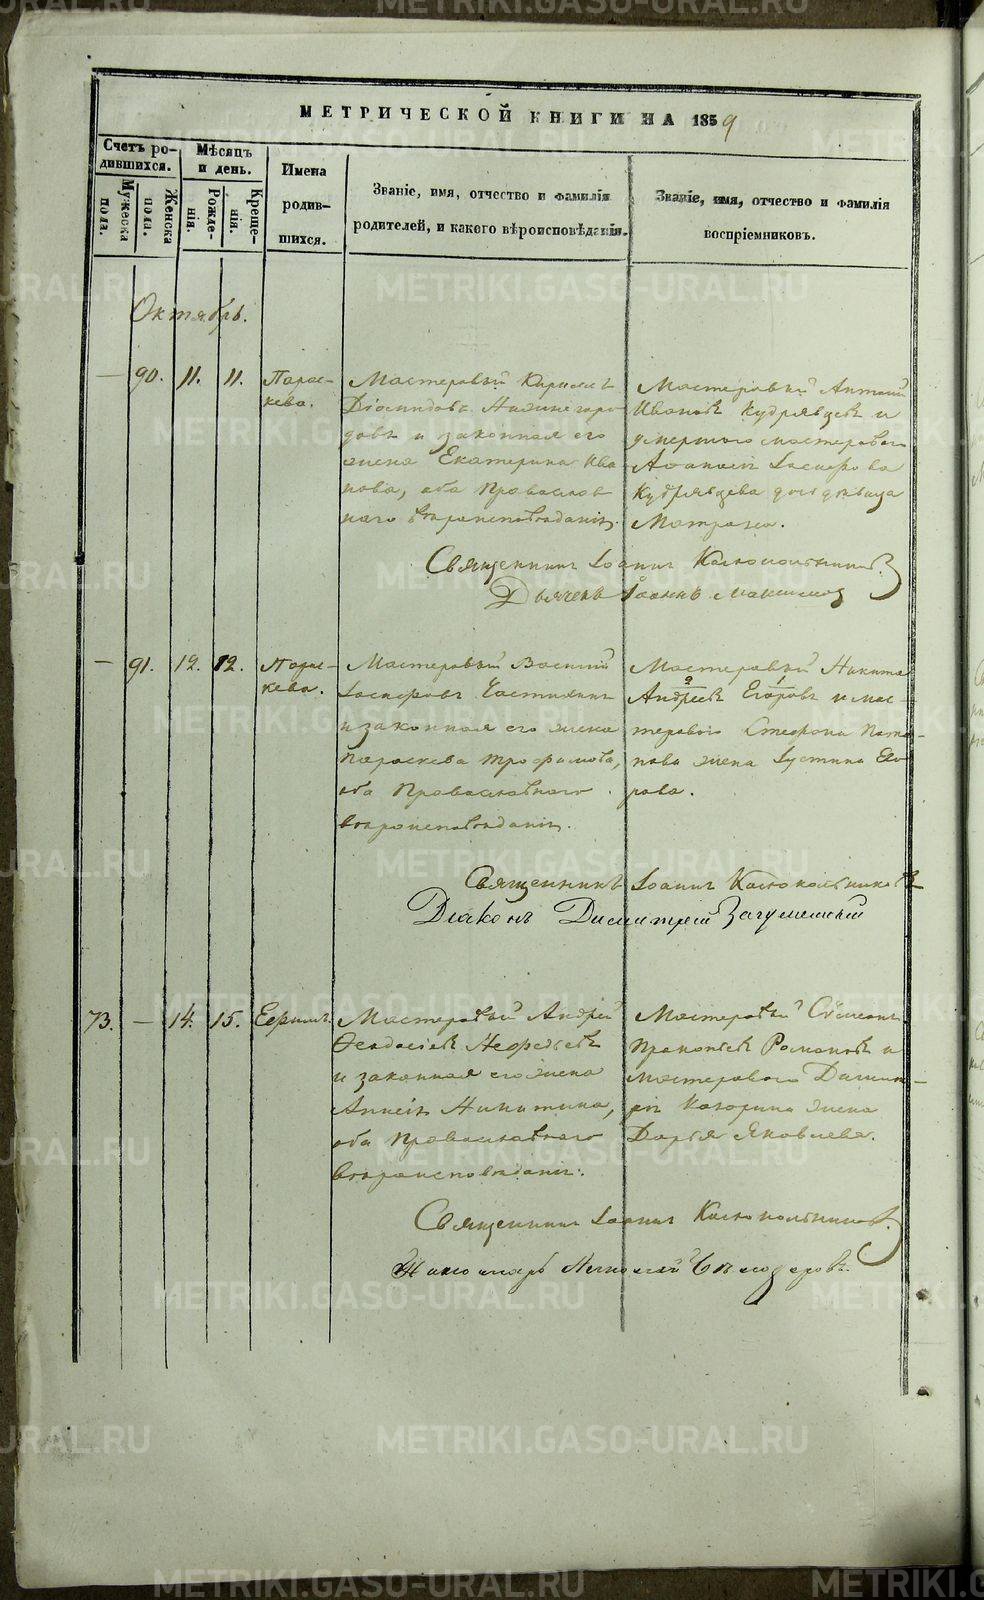 МЕТРИЧЕСКОЙ КНИГИ НА 1859
Счетъ ро-
дившихся.
Мужеска
пола.
Женска
пола.
Мѣсяцъ
и день.
Рожде-
нія.
Креще-
нія.
Имена
родив-
шихся.
Званіе, имя, отчество и фамилія
родителей, и какого вѣроисповѣданія.
Званіе, имя, отчество и фамилія
воспріемниковъ.
Октябрь.
— 90. 11. 11.
Парас-
кева.
Мастеровый Кириллъ
Діомидовъ Нижегоро-
довъ и законная его
жена Екатерина Ива
нова, оба Православ
наго вѣроисповѣданія.
Мастеровый Антоній
Ивановъ Кудрявцевъ и
умершаго мастероваго
Кудрявцева дочь дѣвица
Матрона.
Священникъ Іоаннъ Колокольниковъ
Дьячекъ Іоаннъ Максимов
— 91. 12. 12.
Парас-
кева.
Мастеровый Василій
и законная его жена
Параскева Трофимова,
оба Православнаго
вѣроисповѣданія.
Мастеровый Никита
2 1
Андреевъ Егоровъ и мас-
тероваго Стефана Пота-
пова жена Іустина Его
рова.
Священникъ Іоаннъ Колокольниковъ
Діаконъ Димитрій
73. — 14. 15.
Ефримъ.
Мастеровый Андрей
Ѳеодосіевъ Мефодьевъ
и законная его жена
Аннсія Никитина,
оба Православнаго
вѣроисповѣданія.
Мастеровый Сѵмеонъ
Прокопьевъ Романовъ и
мастероваго Димит-
рія Казарина жена
Дарья Яковлева.
Священникъ Іоаннъ Колокольниковъ.
Пономарь Николай
METRIKI.GASO-URAL.RU